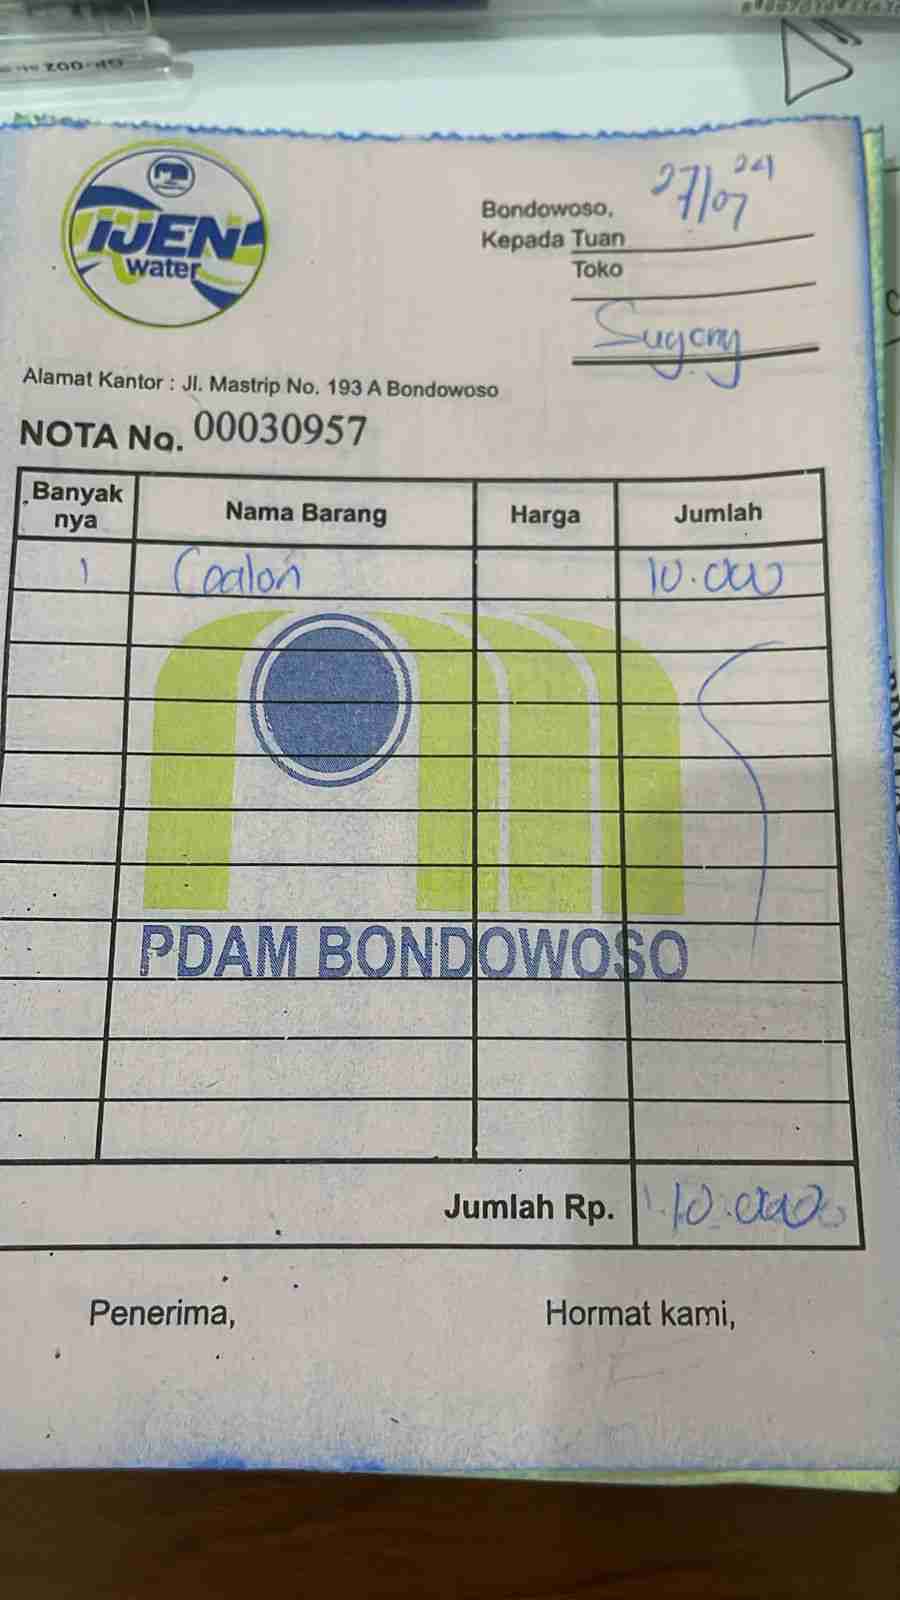 IJEN
water
Bondowoso, 27/07 24
Kepada Tuan
Toko
Sugeng
Alamat Kantor : Jl. Mastrip No. 193 A Bondowoso
NOTA No. 00030957
Banyak nya Nama Barang Harga Jumlah
1 Galon 10.000
PDAM BONDOWOSO
Jumlah Rp. 10.000
Penerima, Hormat kami,